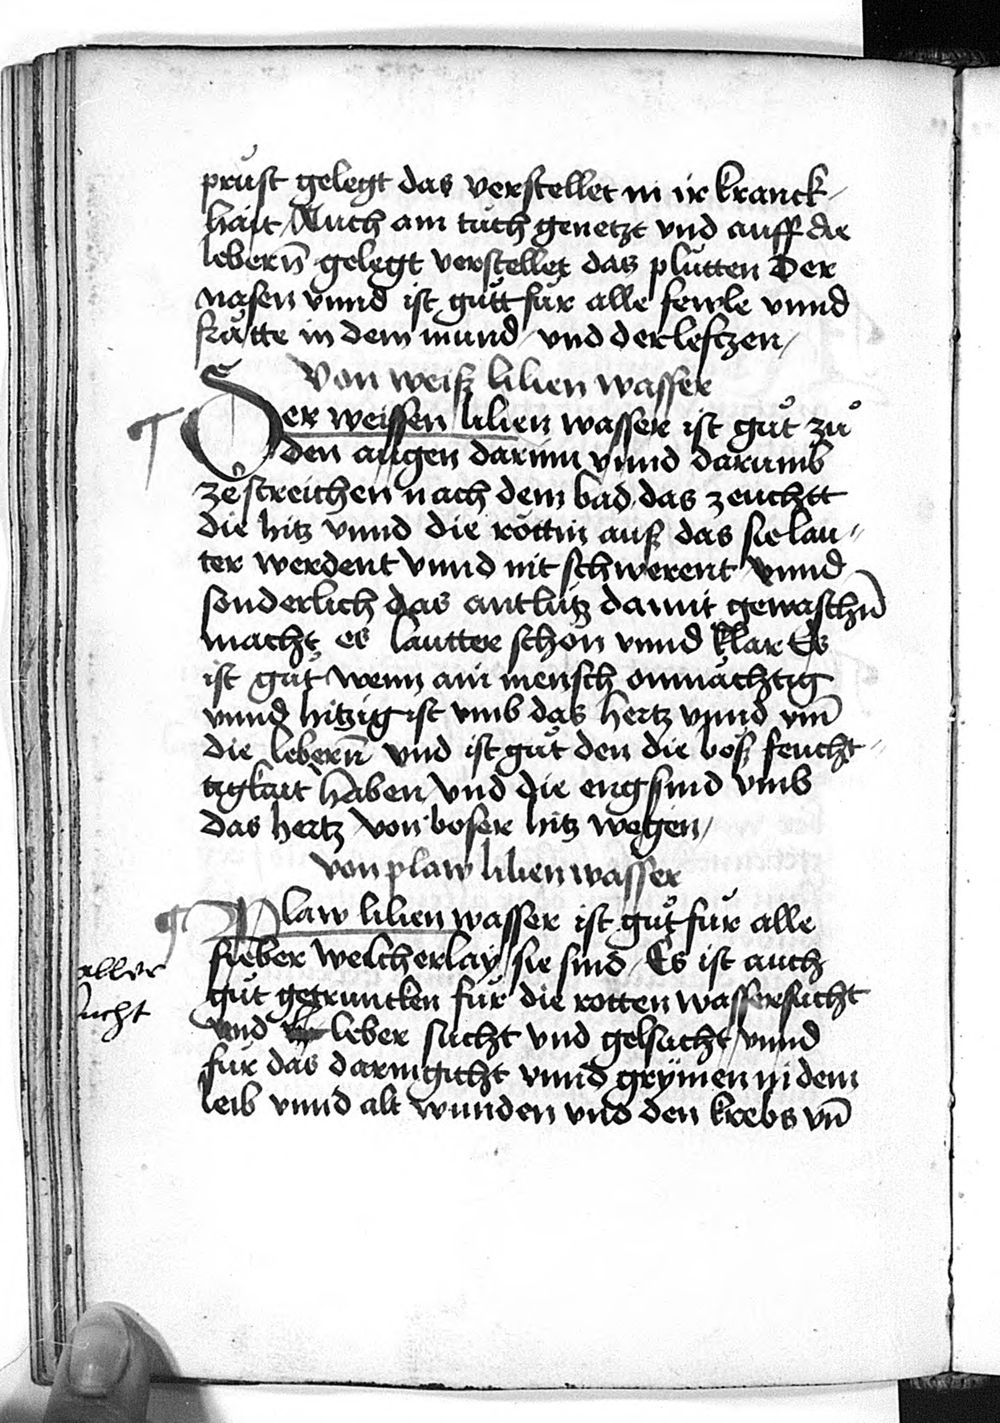 prust gelegt das verstellet in ir kranck-
hait / Auch ain tuch genetzt und auff die
lebern̄ gelegt verstellet das plutten Der
nasen vnnd ist gůtt fur alle fewle vnnd
in dem mund / vnd der lefftzen /
Von weiß lilien wasser
Der weissen lilien wasser ist gůt zů
den augen darinn vnnd darumb
ze streichen nach dem bad das zeuchtt
die hitz vnnd die röttin auß das sie lau-
ter werdent vnnd nit schwerent vnnd
sonderlich das antlutz damit gewaschn̄
macht es lautter schon vnnd klar Es
ist gůt wenn ain mensch onmächtig
vnnd hitzig ist vmb das hertz vnnd vm̄
die lebern̄ vnd ist gůt den die böß feucht-
tigkait haben / vnd die eng sind vmb
das hertz von boser hitz wegen /
von plaw lilien wasser
Plaw lilien wasser ist gůt fur alle
fieber welcherlay sie sind / Es ist auch
gůt getruncken fur die rotten wassersucht
aller
sucht
vnd leber sucht vnd gelsucht / vnnd
fur das darmgicht vnnd grymen in dem
leib vnnd alt wunden vnd den krebs vn̄